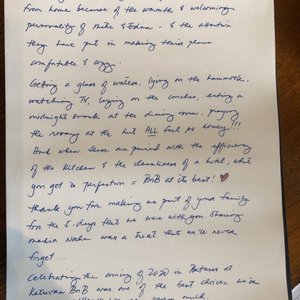 from home because of the warmth & welcoming
personality of Mike & &
they have put in making their place
comfortable & cozy.
Getting a glass of water, lying on the hammock,
watching TV, laying on the couches, eating a
midnight snack at the dining room, praying
the rosary at the hut ALL feel so homey!!!
And when these are paired with the efficiency
of the kitchen & the cleanliness of a hotel, what
you get is perfection = BnB at its best! ♥
Thank you for making us part of your family
for the 5-days that we were with you. Sharing
media noche was a treat that we'll never
forget...
Celebrating the coming of 2020 in Bataan at
BnB was one of the best choices we've